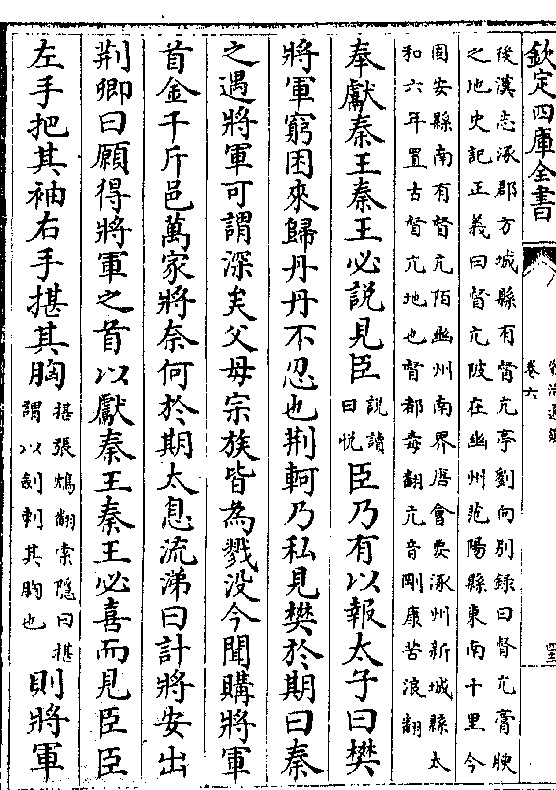 欽定四庫全書
卷六
後漢志涿郡方城縣有督亢亭劉向別録曰督亢膏腴
之地史記正義曰督亢陂在幽州范陽縣東南十里今
固安縣南有督亢陌幽州南界唐會要涿州新城縣太
和六年置古督亢地也督都毒翻亢音剛康苦浪翻
奉獻秦王秦王必説見臣説讀曰悦臣乃有以報太子曰樊
將軍窮困來歸丹丹不忍也荆軻乃私見樊於期曰秦
之遇將軍可謂深矣父母宗族皆為戮没今聞購將軍
首金千斤邑萬家將奈何於期太息流涕曰計將安出
荆卿曰願得將軍之首以獻秦王秦王必喜而見臣臣
左手把其袖右手揕其胸揕張鴆翻索隱曰揕謂以劍刺其胸也則將軍